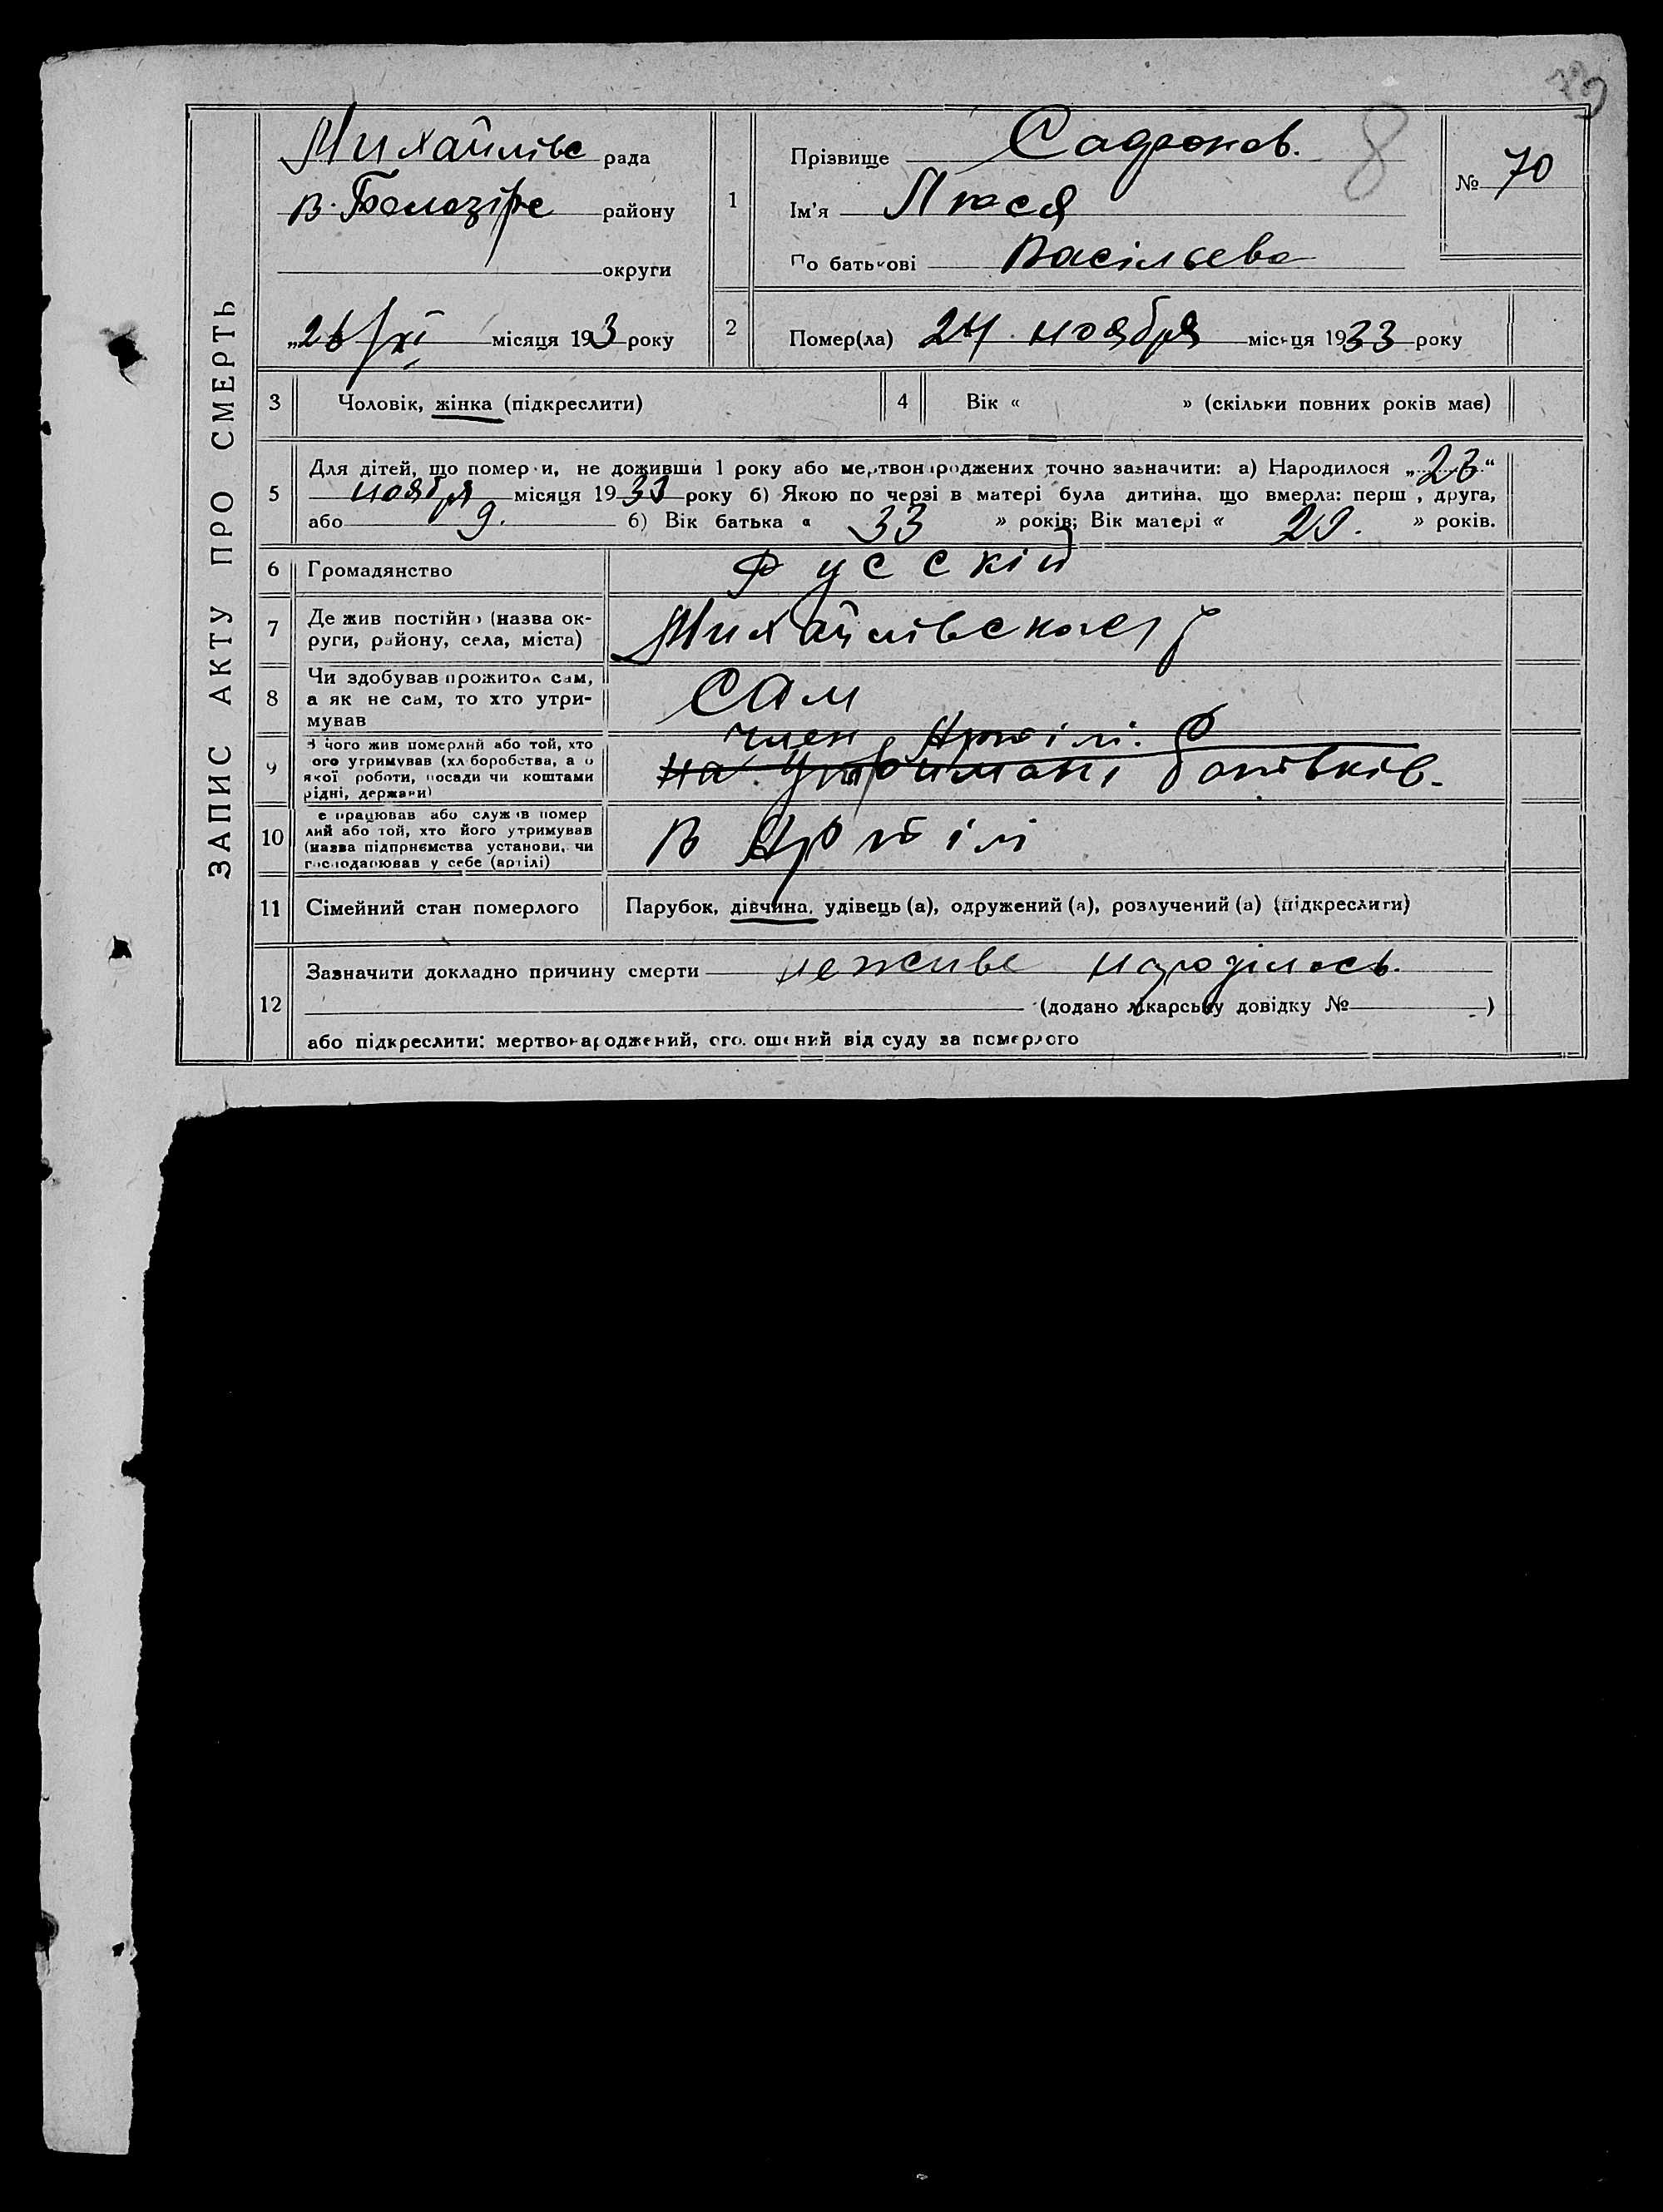 ЗАПИС АКТУ ПРО СМЕРТЬ
Михайлівс рада
В. Білозірс району
округи
„26/XI місяця 193 3 року
1
Прізвище Садронов. 8
Ім'я Люся
По батькові Васільева
№ 70
2
Помер(ла) 24 ноября місяця 1933 року
3 Чоловік, жінка (підкреслити)
4 Вік « » (скільки повних років має)
5 Для дітей, що померли, не доживши 1 року або мертвонароджених точно зазначити: а) Народилося „23“
ноября місяця 1933 року б) Якою по черзі в матері була дитина, що вмерла: перша, друга,
або 9. б) Вік батька « 33 » років; Вік матері « 29. » років.
6 Громадянство русскій
7 Де жив постійно (назва округи, району, села, міста)
8 Чи здобував прожиток сам, а як не сам, то хто утримував
сам
9 З чого жив померлий або той, хто його утримував (хліборобства, або якої роботи, посади чи коштами рідні, держави)
член Артілі.
на утримані батьків.
10 Де працював або служив померлий або той, хто його утримував (назва підприємства установи, чи господарював у себе (артілі)
В Артілі
11 Сімейний стан померлого Парубок, дівчина, удівець (а), одружений (а), розлучений (а) (підкреслити)
12 Зазначити докладно причину смерти неживе народілось.
(додано лікарську довідку № )
або підкреслити: мертвонароджений, оголошений від суду за померлого